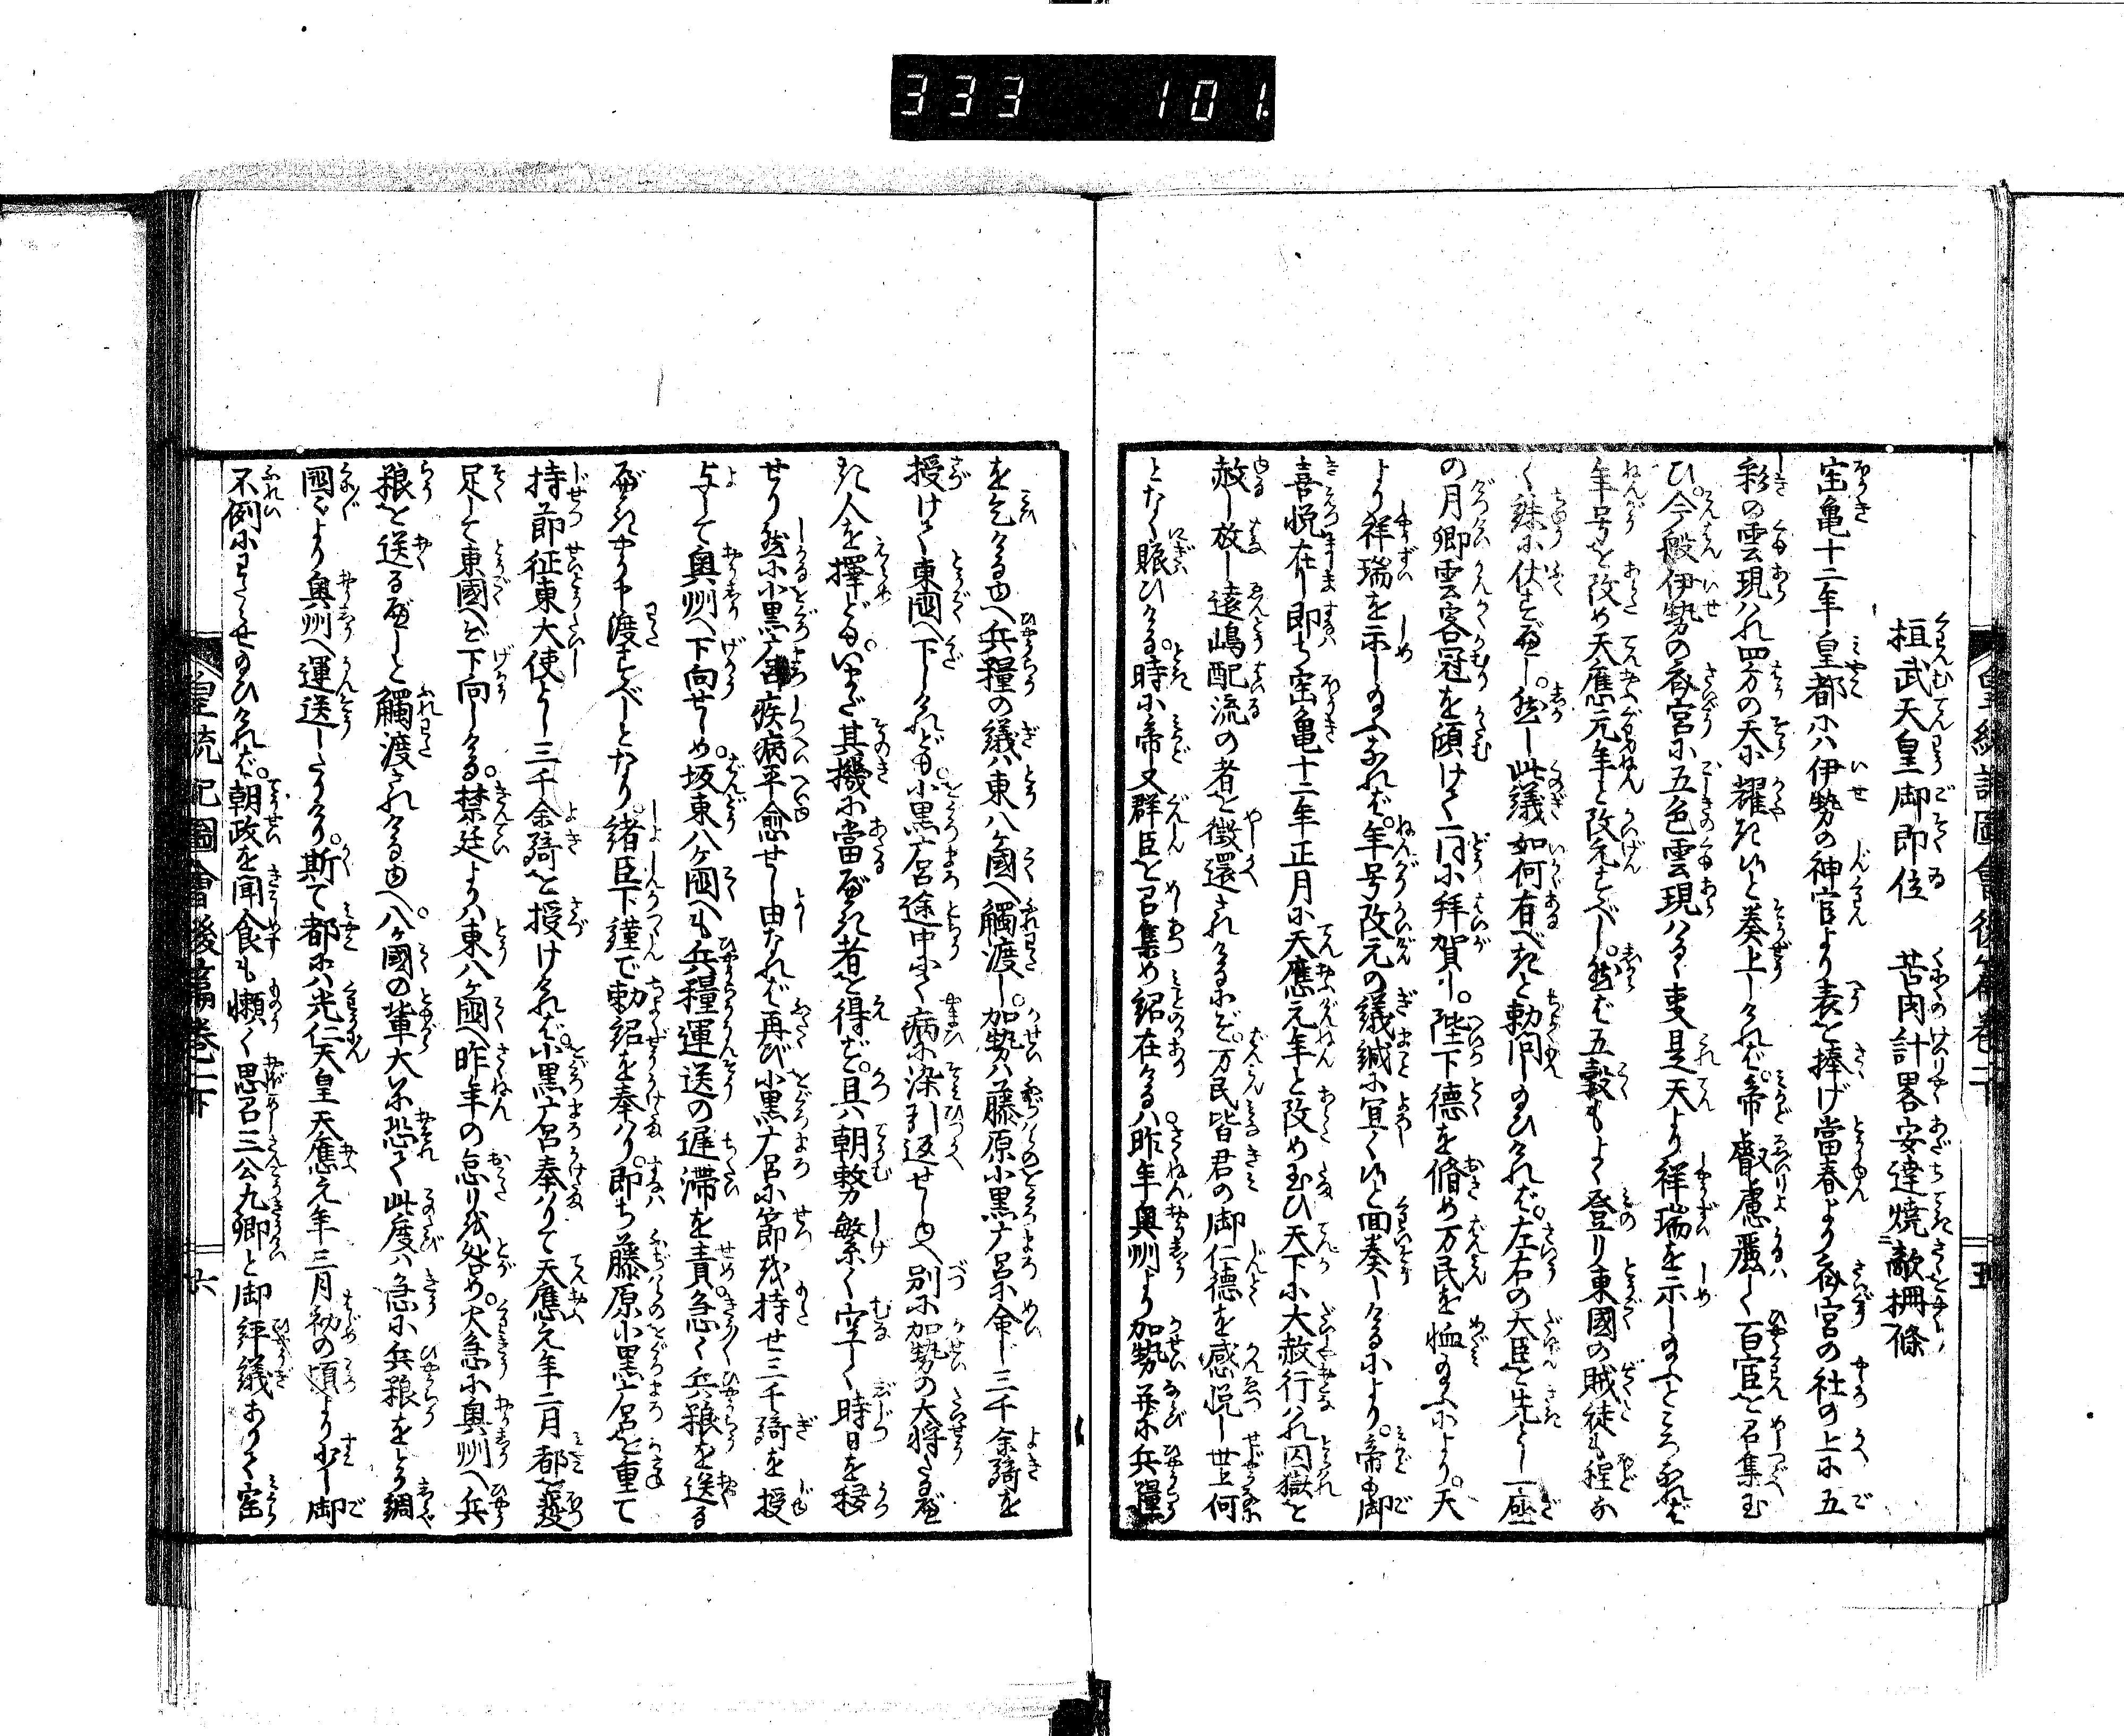 333 101.
桓武天皇御即位 苦肉計畧安達燒敵柵條
宝亀十二年皇都にハ伊勢の神官より表を捧げ當春より斎宮の社の上に五
彩の雲現ハれ四方の天に耀き候と奏上しけれバ。帝叡慮麗しく百官を召集玉
ひ。今般伊勢の斎宮に五色雲現ハるゝ叓是天より祥瑞を示し給ふところなれば
年号を改め天應元年と改元すべし。然ば五穀もよく登り東國の賊徒も程な
く誅に伏すべし。然し此議如何有べきと勅問し給ひけれバ。左右の大臣を先とし一座
の月卿雲客冠を傾けて一同に拜賀し。陛下德を脩め万民を恤給ふにより。天
より祥瑞を示し給ふなれバ。年号改元の議誠に宜く候と回奏しけるにより。帝も御
喜悦在し即ち宝亀十二年正月に天應元年と改め玉ひ天下に大赦行ハれ囚獄を
赦し放し遠嶋配流の者を徴還されけるにぞ。万民皆君の御仁德を感悦し世上何
となく賑ひける。時に帝又群臣を召集め詔在けるハ。昨年奥州より加勢并に兵糧
を乞ける由へ兵糧の議ハ東八ヶ國へ觸渡し。加勢ハ藤原小黒广呂に命じ三千余騎を
授けて東國へ下しけれども。小黒广呂途中にて病に染引返せし由へ別に加勢の大将たるべ
き人を擇ども。いまだ其機に當るべき者を得ず。且ハ朝務繁く空しく時日を移
せり然に小黒广呂疾病平愈せし由なれバ再び小黒广呂に節刀を持せ三千騎を授
与して奥州へ下向せしめ。坂東八ヶ國へも兵糧運送の遅滞を責急く兵粮を送る
べきやう申渡すべしとなり。諸臣下謹で勅詔を奉ハり。即ち藤原小黒广呂を重て
持節征東大使とし三千余騎を授けけれバ。小黒广呂奉ハりて天應元年二月都を發
足して東國へぞ下向しける。禁廷よりハ東八ヶ國へ昨年の怠りを咎め。火急に奥州へ兵
粮を送るべしと觸渡されける由へ。八ヶ國の輩大に恐て此度ハ急に兵粮をとり調
國々より奥州へ運送したりけり。斯て都にハ光仁天皇天應元年三月初の頃より少し御
不例にわたらせ給ひけれバ。朝政を聞食も懶く思召三公九卿と御評議ありて宝
皇統記圖會後篇卷二下 六